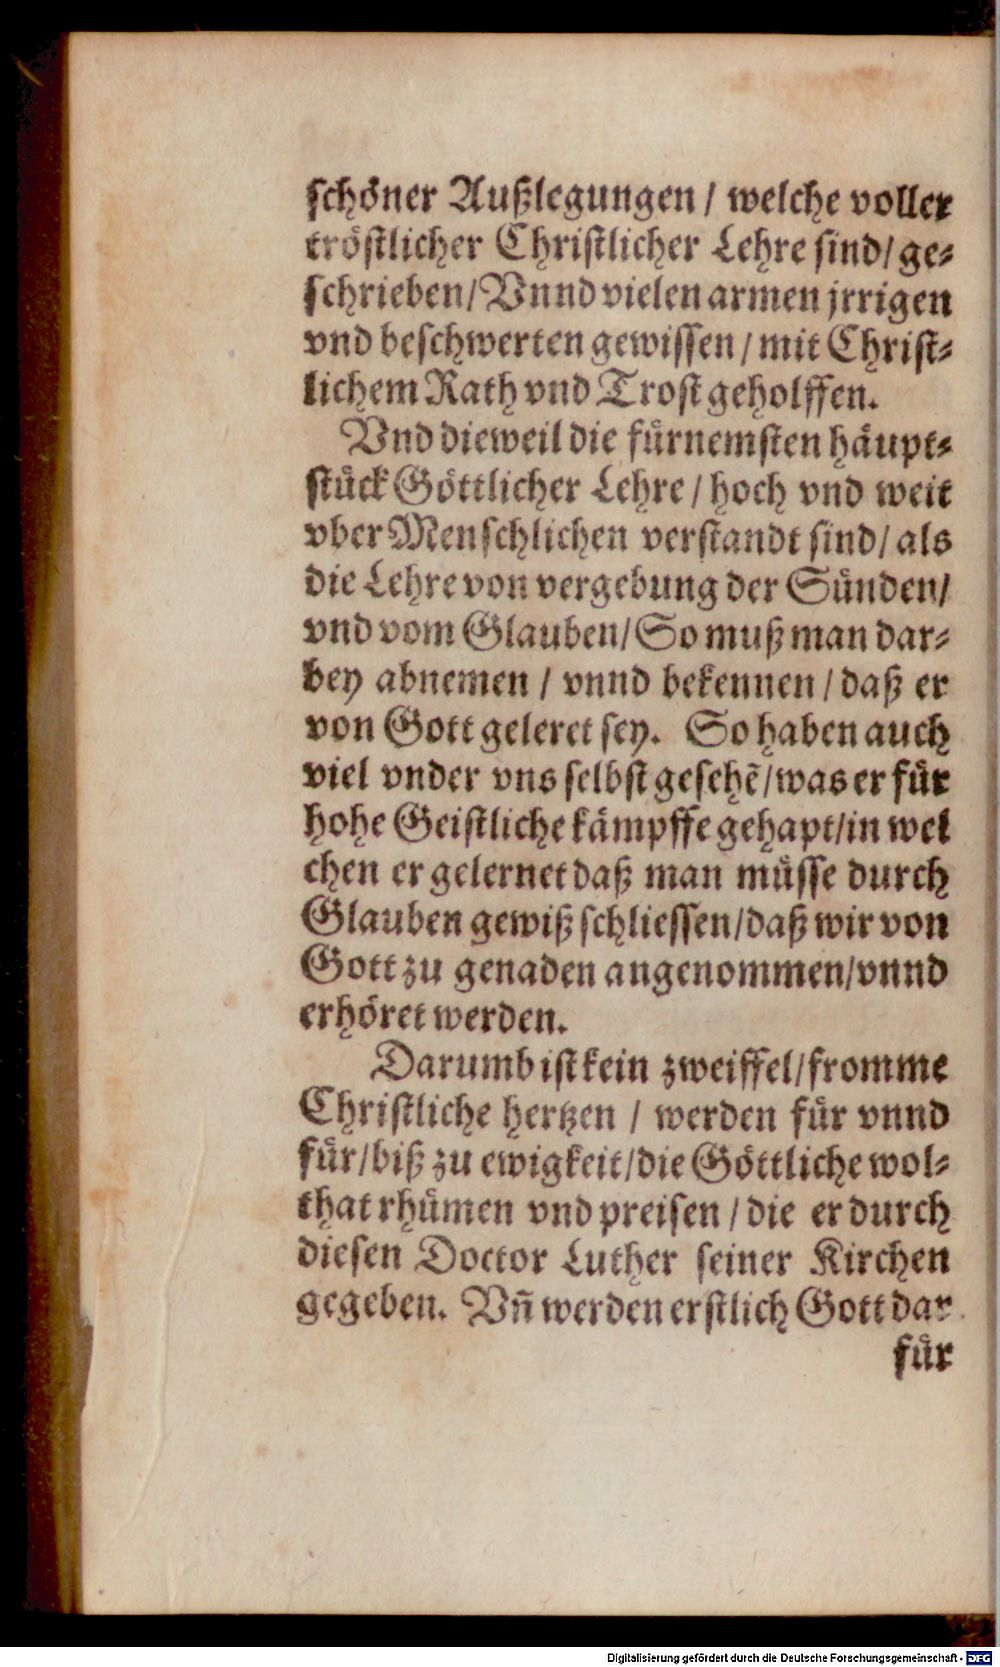 schöner Außlegungen / welche voller
tröstlicher Christlicher Lehre sind / ge⸗
schrieben / Vnnd vielen armen jrrigen
vnd beschwerten gewissen / mit Christ⸗
lichem Rath vnd Trost geholffen.
Vnd dieweil die fürnemsten häupt⸗
stück Göttlicher Lehre / hoch vnd weit
vber Menschlichen verstandt sind / als
die Lehre von vergebung der Sünden /
vnd vom Glauben / So muß man dar⸗
bey abnemen / vnnd bekennen / daß er
von Gott geleret sey. So haben auch
viel vnder vns selbst gesehẽ / was er für
hohe Geistliche kämpffe gehapt / in wel
chen er gelernet daß man müsse durch
Glauben gewiß schliessen / daß wir von
Gott zu genaden angenommen / vnnd
erhöret werden.
Darumb ist kein zweiffel / fromme
Christliche hertzen / werden für vnnd
für / biß zu ewigkeit / die Göttliche wol⸗
that rhümen vnd preisen / die er durch
diesen Doctor Luther seiner Kirchen
gegeben. Vñ werden erstlich Gott dar
für
Digitalisierung gefördert durch die Deutsche Forschungsgemeinschaft - DFG